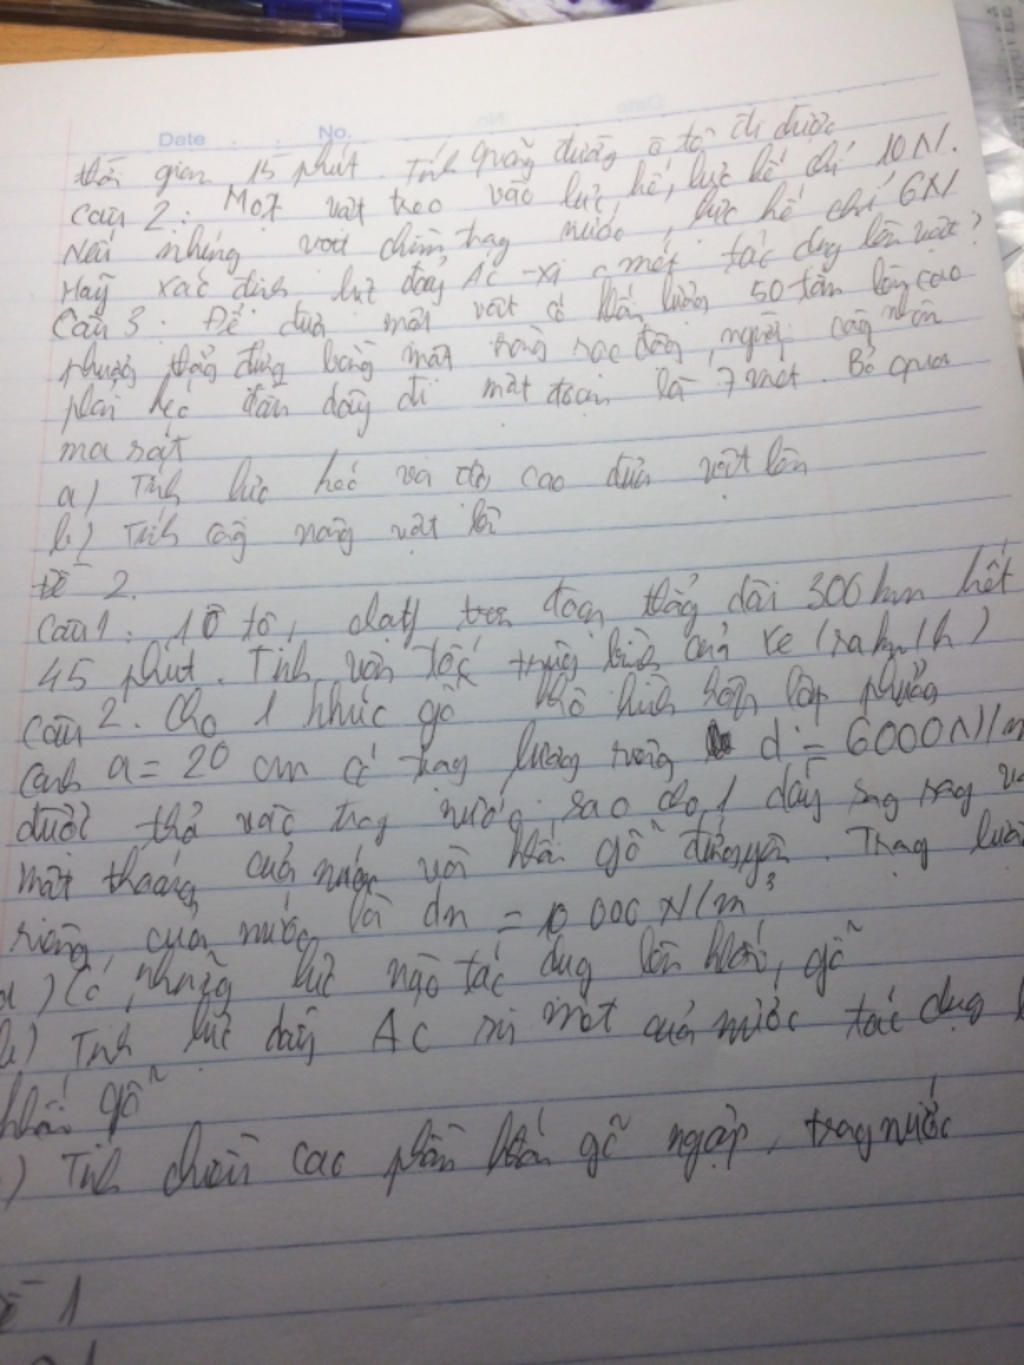 Date No.
thời gian 15 phút. Tính quãng đường ô tô đi được
Câu 2: Một vật treo vào lực kế, lực kế chỉ 10N.
Nếu nhúng vật chìm trong nước, lực kế chỉ 6N
Hãy xác định lực đẩy Ac-xi-mét tác dụng lên vật?
Câu 3: Để đưa một vật có khối lượng 50 lên cao
phương thẳng đứng bằng một ròng rọc động, người công nhân
phải kéo dây đi một đoạn là 7 mét. Bỏ qua
ma sát
a) Tính lực kéo và độ cao đưa vật lên
b) Tính công nâng vật lên
Đề 2.
Câu 1: 1 ô tô, chạy trên đoạn thẳng dài 300km hết
45 phút. Tính vận tốc trung bình của xe (ra km/h)
Câu 2. Cho 1 khúc gỗ khô hình hộp lập phương
cạnh a = 20 cm có trọng lượng riêng d = 6000N/m
được thả vào trong nước, sao cho 1 đáy song song
mặt thoáng của nước và khối gỗ đứng yên. Trọng
riêng của nước là dn = 10 000 N/m³
a) Có những lực nào tác dụng lên khối gỗ
b) Tính lực đẩy Ac si mét của nước tác dụng
khối gỗ
) Tính chiều cao phần khối gỗ ngập trong nước
1